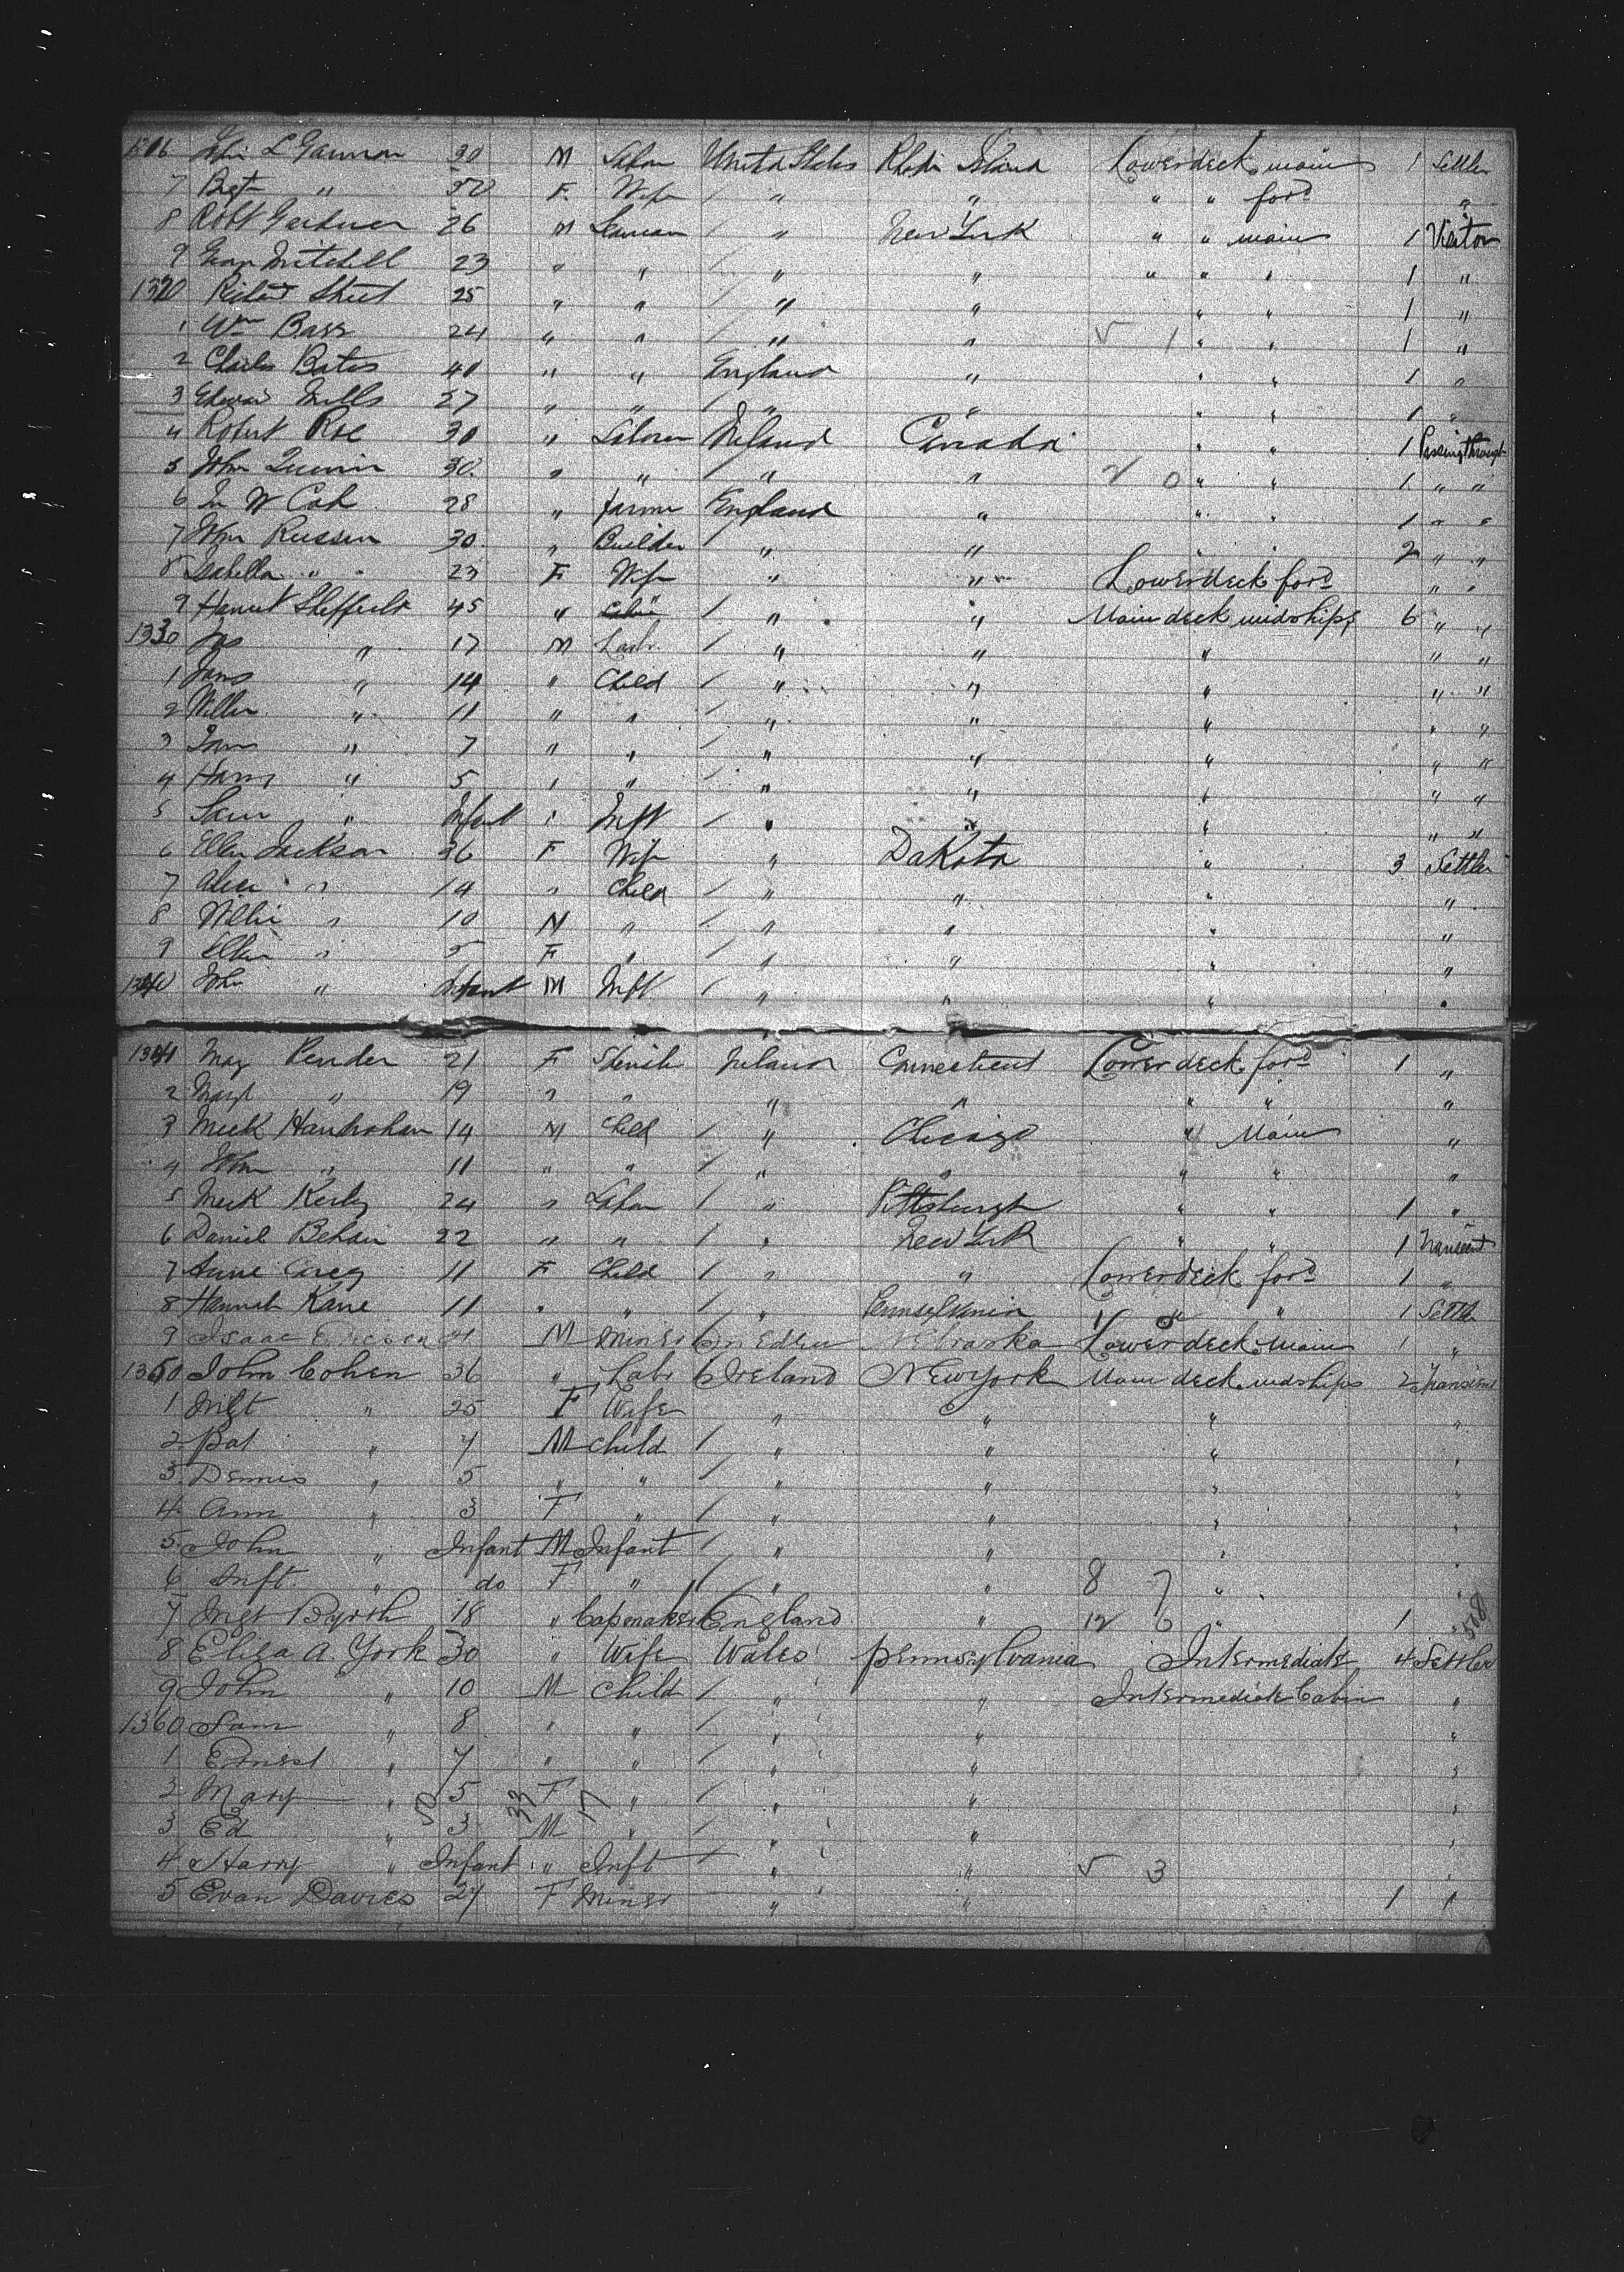 John L Gannon 30 M Labor United States Rhode Island Lowerdeck main 1 Settler
7 Bgt " 30 F. Wife / " " " " ford "
8 Robt Gardner 26 M Seaman / " New York " " main 1 Visitor
9 Geo Mitchell 23 " " / " " " " " 1 "
1320 Richd Street 25 " " / " " " " 1 "
1 Wm Barr 24 " " / " " " " 1 "
2 Charles Bates 40 " " England " " " 1 "
3 Edward Mills 27 " " / " " " " 1 "
4 Robert Roe 30 " Laborer Ireland Canada " " 1 Passing through
5 John Quinn 30 " " / " " " " 1 " "
6 W 28 " farmer England " " " 1 " "
7 30 " Builder / " " " " 2 " "
8 Isabella " 23 F Wife " " Lowerdeck ford " "
9 Sheffield 45 " / " " Main deck midships 6 " "
1330 Jas " 17 M Labr. / " " " " "
1 " 14 " Child / " " " " "
2 " 11 " " / " " " " "
3 " 7 " " / " " " " "
4 Harry " 5 " " / " " " " "
5 Sam " Infant " Inft / " " " " "
6 Ellen Jackson 36 F Wife " Dakota " 3 Settler
7 Alice " 14 " Child / " " " "
8 Willie " 10 M " / " " " "
9 Ellen " 5 F " / " " " "
1340 John " Infant M Inft / " " " "
1341 Mary Pender 21 F Ireland Connecticut Lower deck ford 1 "
2 " 19 " " " " " " "
3 Hanrahan 14 M Child / " Chicago " Main "
4 John " 11 " " / " " " " "
5 24 " Labor / " Pittsburgh " " 1 "
6 Daniel 22 " " / " New York " " 1 Transient
7 Anne 11 F Child / " " Lowerdeck ford 1 "
8 Hannah Kane 11 " " / " Pennsylvania " " 1 Settler
9 Isaac M Miner Sweden Nebraska Lowerdeck main 1 "
1350 John Cohen 36 " Labr Ireland New York Main deck midships 2 Transient
1 Mgt " 25 F Wife " " " "
2 Pat " 7 M Child / " " " "
3 Dennis " 5 " " / " " " "
4 Ann " 3 F " / " " " "
5 John " Infant M Infant / " " " "
6 Inft. " do F " / " " 8 7 " "
7 Mgt 18 " Capmaker England " 12 6 " 1 "
8 Eliza A. York 30 " Wife Wales Pennsylvania Intermediate 4 Settler
9 John " 10 M Child / " " Intermediate Cabin "
1360 Sam " 8 " " / " " "
1 Ernest " 7 " " / " " "
2 Mary " 5 F " / " " "
3 Ed " 3 M " / " " "
4 Harry " Infant " Inft " " 5 3 "
5 Evan Davies 27 F Miner " " 1 "